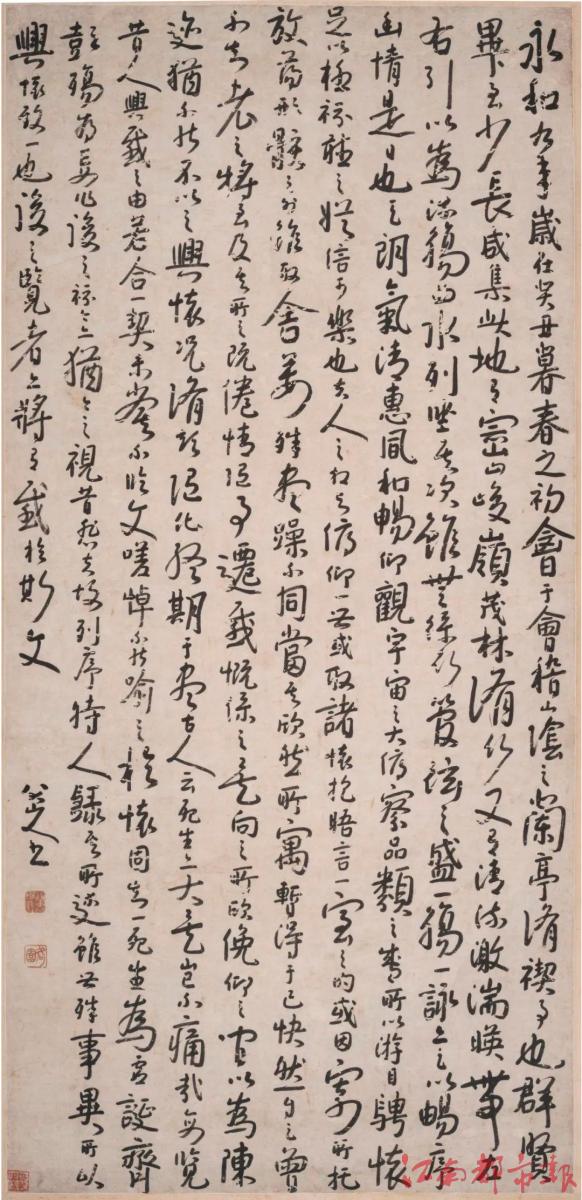 永和九年歲在癸丑暮春之初會于會稽山陰之蘭亭脩禊事也群賢
畢至少長咸集此地有崇山峻嶺茂林脩竹又有清流激湍暎帶左
右引以為流觴曲水列坐其次雖無絲竹管弦之盛一觴一詠亦足以暢序
幽情是日也天朗氣清惠風和暢仰觀宇宙之大俯察品類之盛所以游目騁懷
足以極視聽之娛信可樂也夫人之相與俯仰一世或取諸懷抱晤言一室之內或因寄所托
放蕩形骸之外雖取舍萬殊靜躁不同當其欣然所寓暫得于己快然自足曾
不知老之將至及其所之既倦情隨事遷感慨係之矣向之所欣俛仰之間以為陳
迹猶不能不以之興懷況脩短隨化終期于盡古人云死生亦大矣豈不痛哉每覽
昔人興感之由若合一契未嘗不臨文嗟悼不能喻之於懷固知一死生為虛誕齊
彭殤為妄作後之視今亦猶今之視昔悲夫故列序時人錄其所述雖世殊事異所以
興懷致一也後之覽者亦將有感於斯文
八大山人書
江南都市報